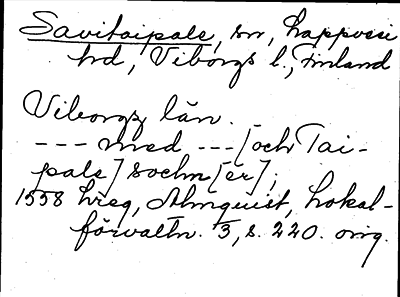 Savitaipale, sn, Lappvesi
hd, Viborgs l., Finland
Viborgz län.
--- med --- [och Tai-
pale] sochn[er];
1558 hreg, Almquist, Lokal-
förvaltn. 3, s. 220. orig.